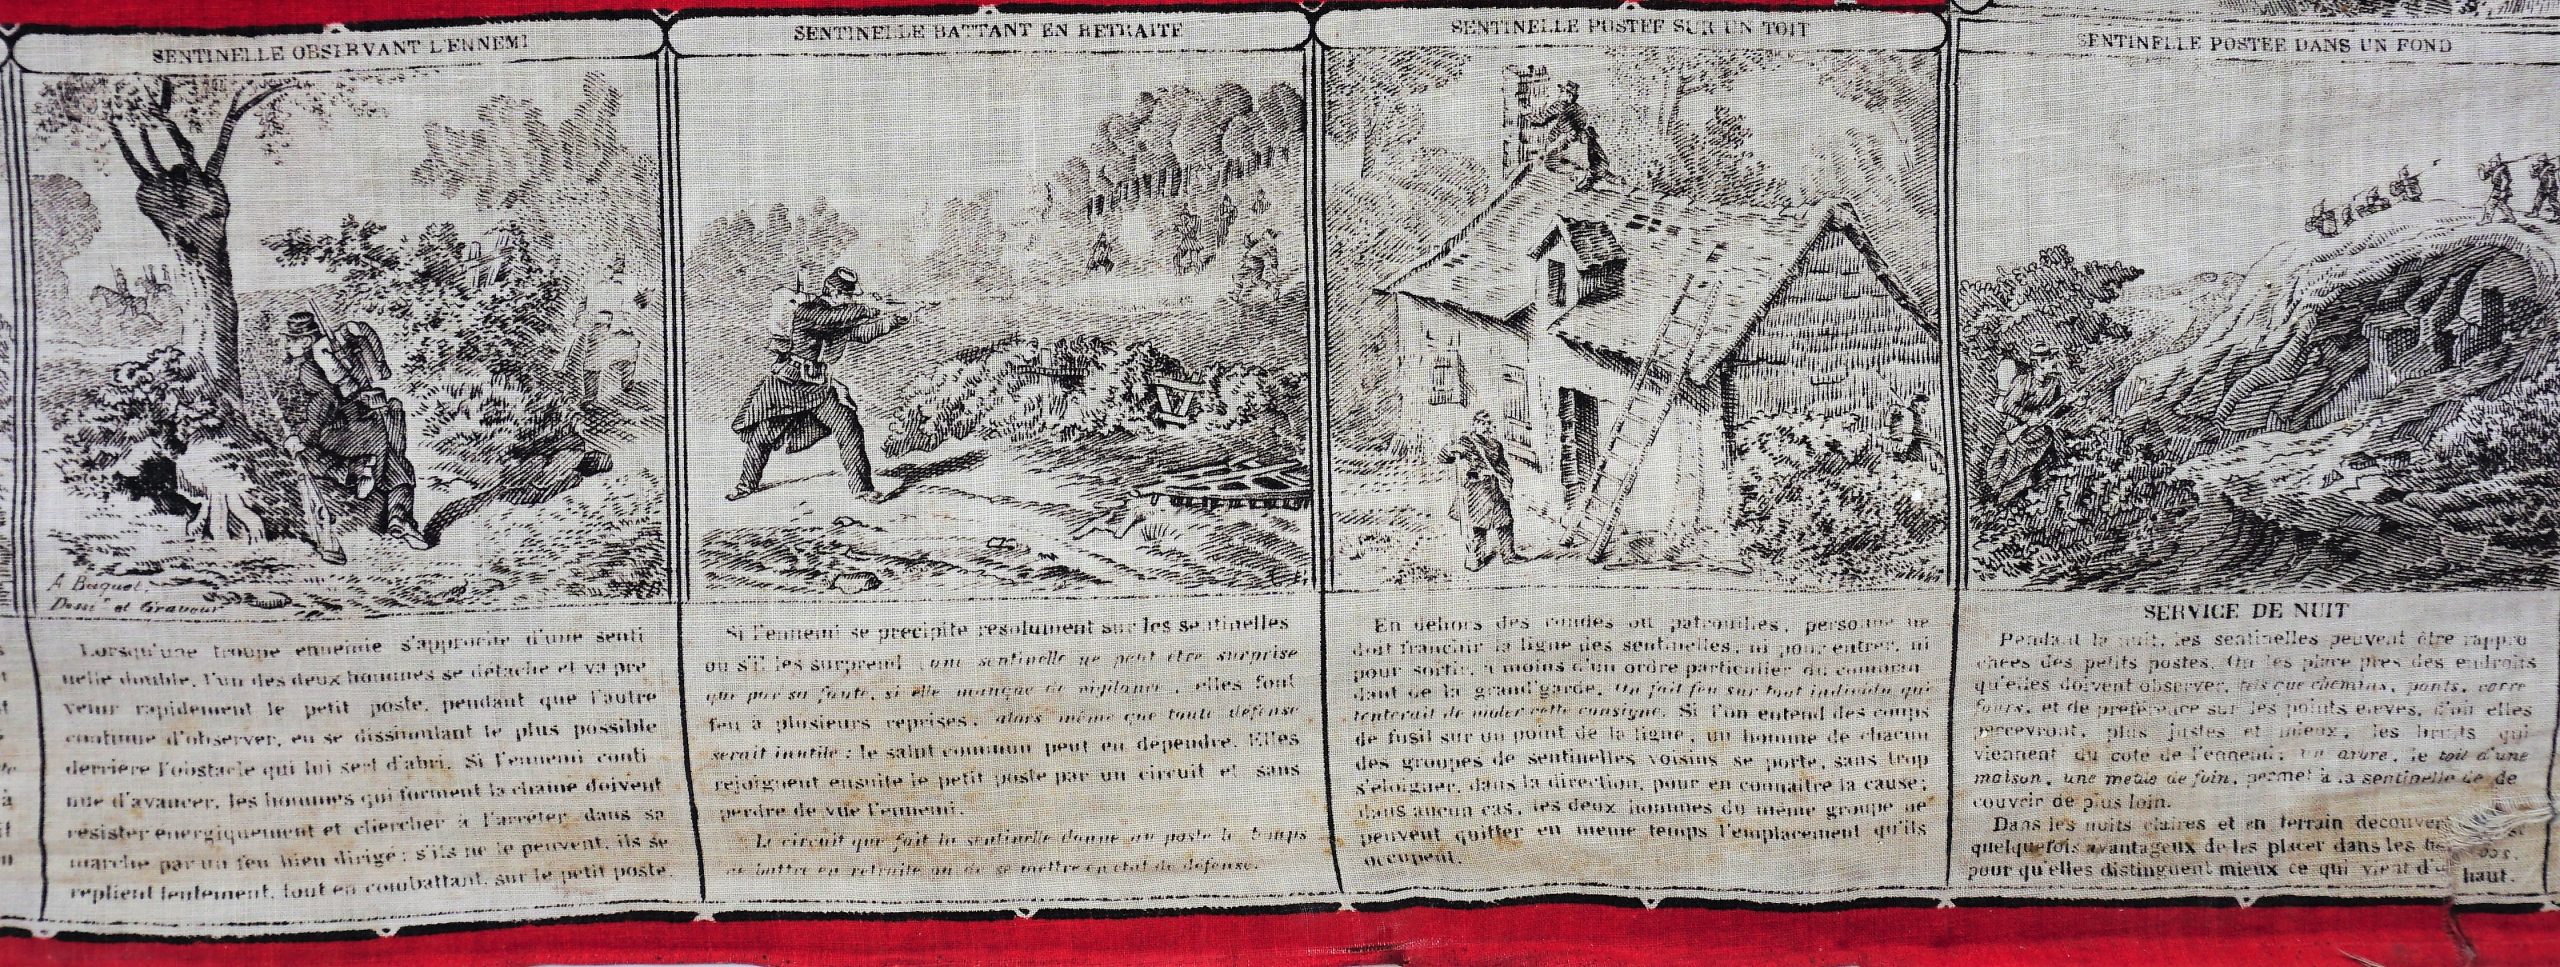 SENTINELLE OBSERVANT L'ENNEMI
A Buquet.
Dessr et Graveur
Lorsqu'une troupe ennemie s'approche d'une senti
nelle double, l'un des deux hommes se détache et va pré
venir rapidement le petit poste, pendant que l'autre
continue d'observer, en se dissimulant le plus possible
derrière l'obstacle qui lui sert d'abri. Si l'ennemi conti
nue d'avancer, les hommes qui forment la chaîne doivent
résister énergiquement et chercher à l'arrêter dans sa
marche par un feu bien dirigé; s'ils ne le peuvent, ils se
replient lentement, tout en combattant, sur le petit poste.
SENTINELLE BATTANT EN RETRAITE
Si l'ennemi se précipite résolument sur les sentinelles
ou s'il les surprend (une sentinelle ne peut être surprise
que par sa faute, si elle manque de vigilance), elles font
feu à plusieurs reprises, alors même que toute défense
serait inutile: le salut commun peut en dépendre. Elles
rejoignent ensuite le petit poste par un circuit et sans
perdre de vue l'ennemi.
Le circuit que fait la sentinelle donne au poste le temps
de battre en retraite ou de se mettre en état de défense.
SENTINELLE POSTÉE SUR UN TOIT
En dehors des rondes ou patrouilles, personne ne
doit franchir la ligne des sentinelles, ni pour entrer, ni
pour sortir, à moins d'un ordre particulier du comman
dant de la grand'garde. On fait feu sur tout individu qui
tenterait de violer cette consigne. Si l'on entend des coups
de fusil sur un point de la ligne, un homme de chacun
des groupes de sentinelles voisins se porte, sans trop
s'éloigner, dans la direction, pour en connaître la cause;
dans aucun cas, les deux hommes du même groupe ne
peuvent quitter en même temps l'emplacement qu'ils
occupent.
SENTINELLE POSTÉE DANS UN FOND
SERVICE DE NUIT
Pendant la nuit, les sentinelles peuvent être rappro
chées des petits postes. On les place près des endroits
qu'elles doivent observer, tels que chemins, ponts, carre
fours, et de préférence sur les points élevés, d'où elles
percevront, plus justes et mieux, les bruits qui
viennent du côté de l'ennemi; un arbre, le toit d'une
maison, une meule de foin, permet à la sentinelle de dé
couvrir de plus loin.
Dans les nuits claires et en terrain découvert
quelquefois avantageux de les placer dans les
pour qu'elles distinguent mieux ce qui vient d'en haut.